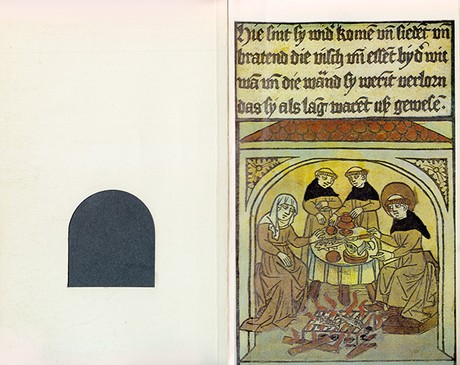 Hie sint sy wid' komē vn̄ siedet vn̄
bratend die visch vn̄ essēt by d' wit
wan vn̄ die wänd sy werīt verlorn
das sy als lāg warēt uß gewesē·